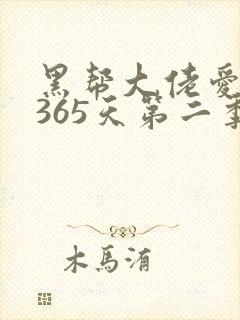 黑帮大佬爱
365天第二季
木馬洧